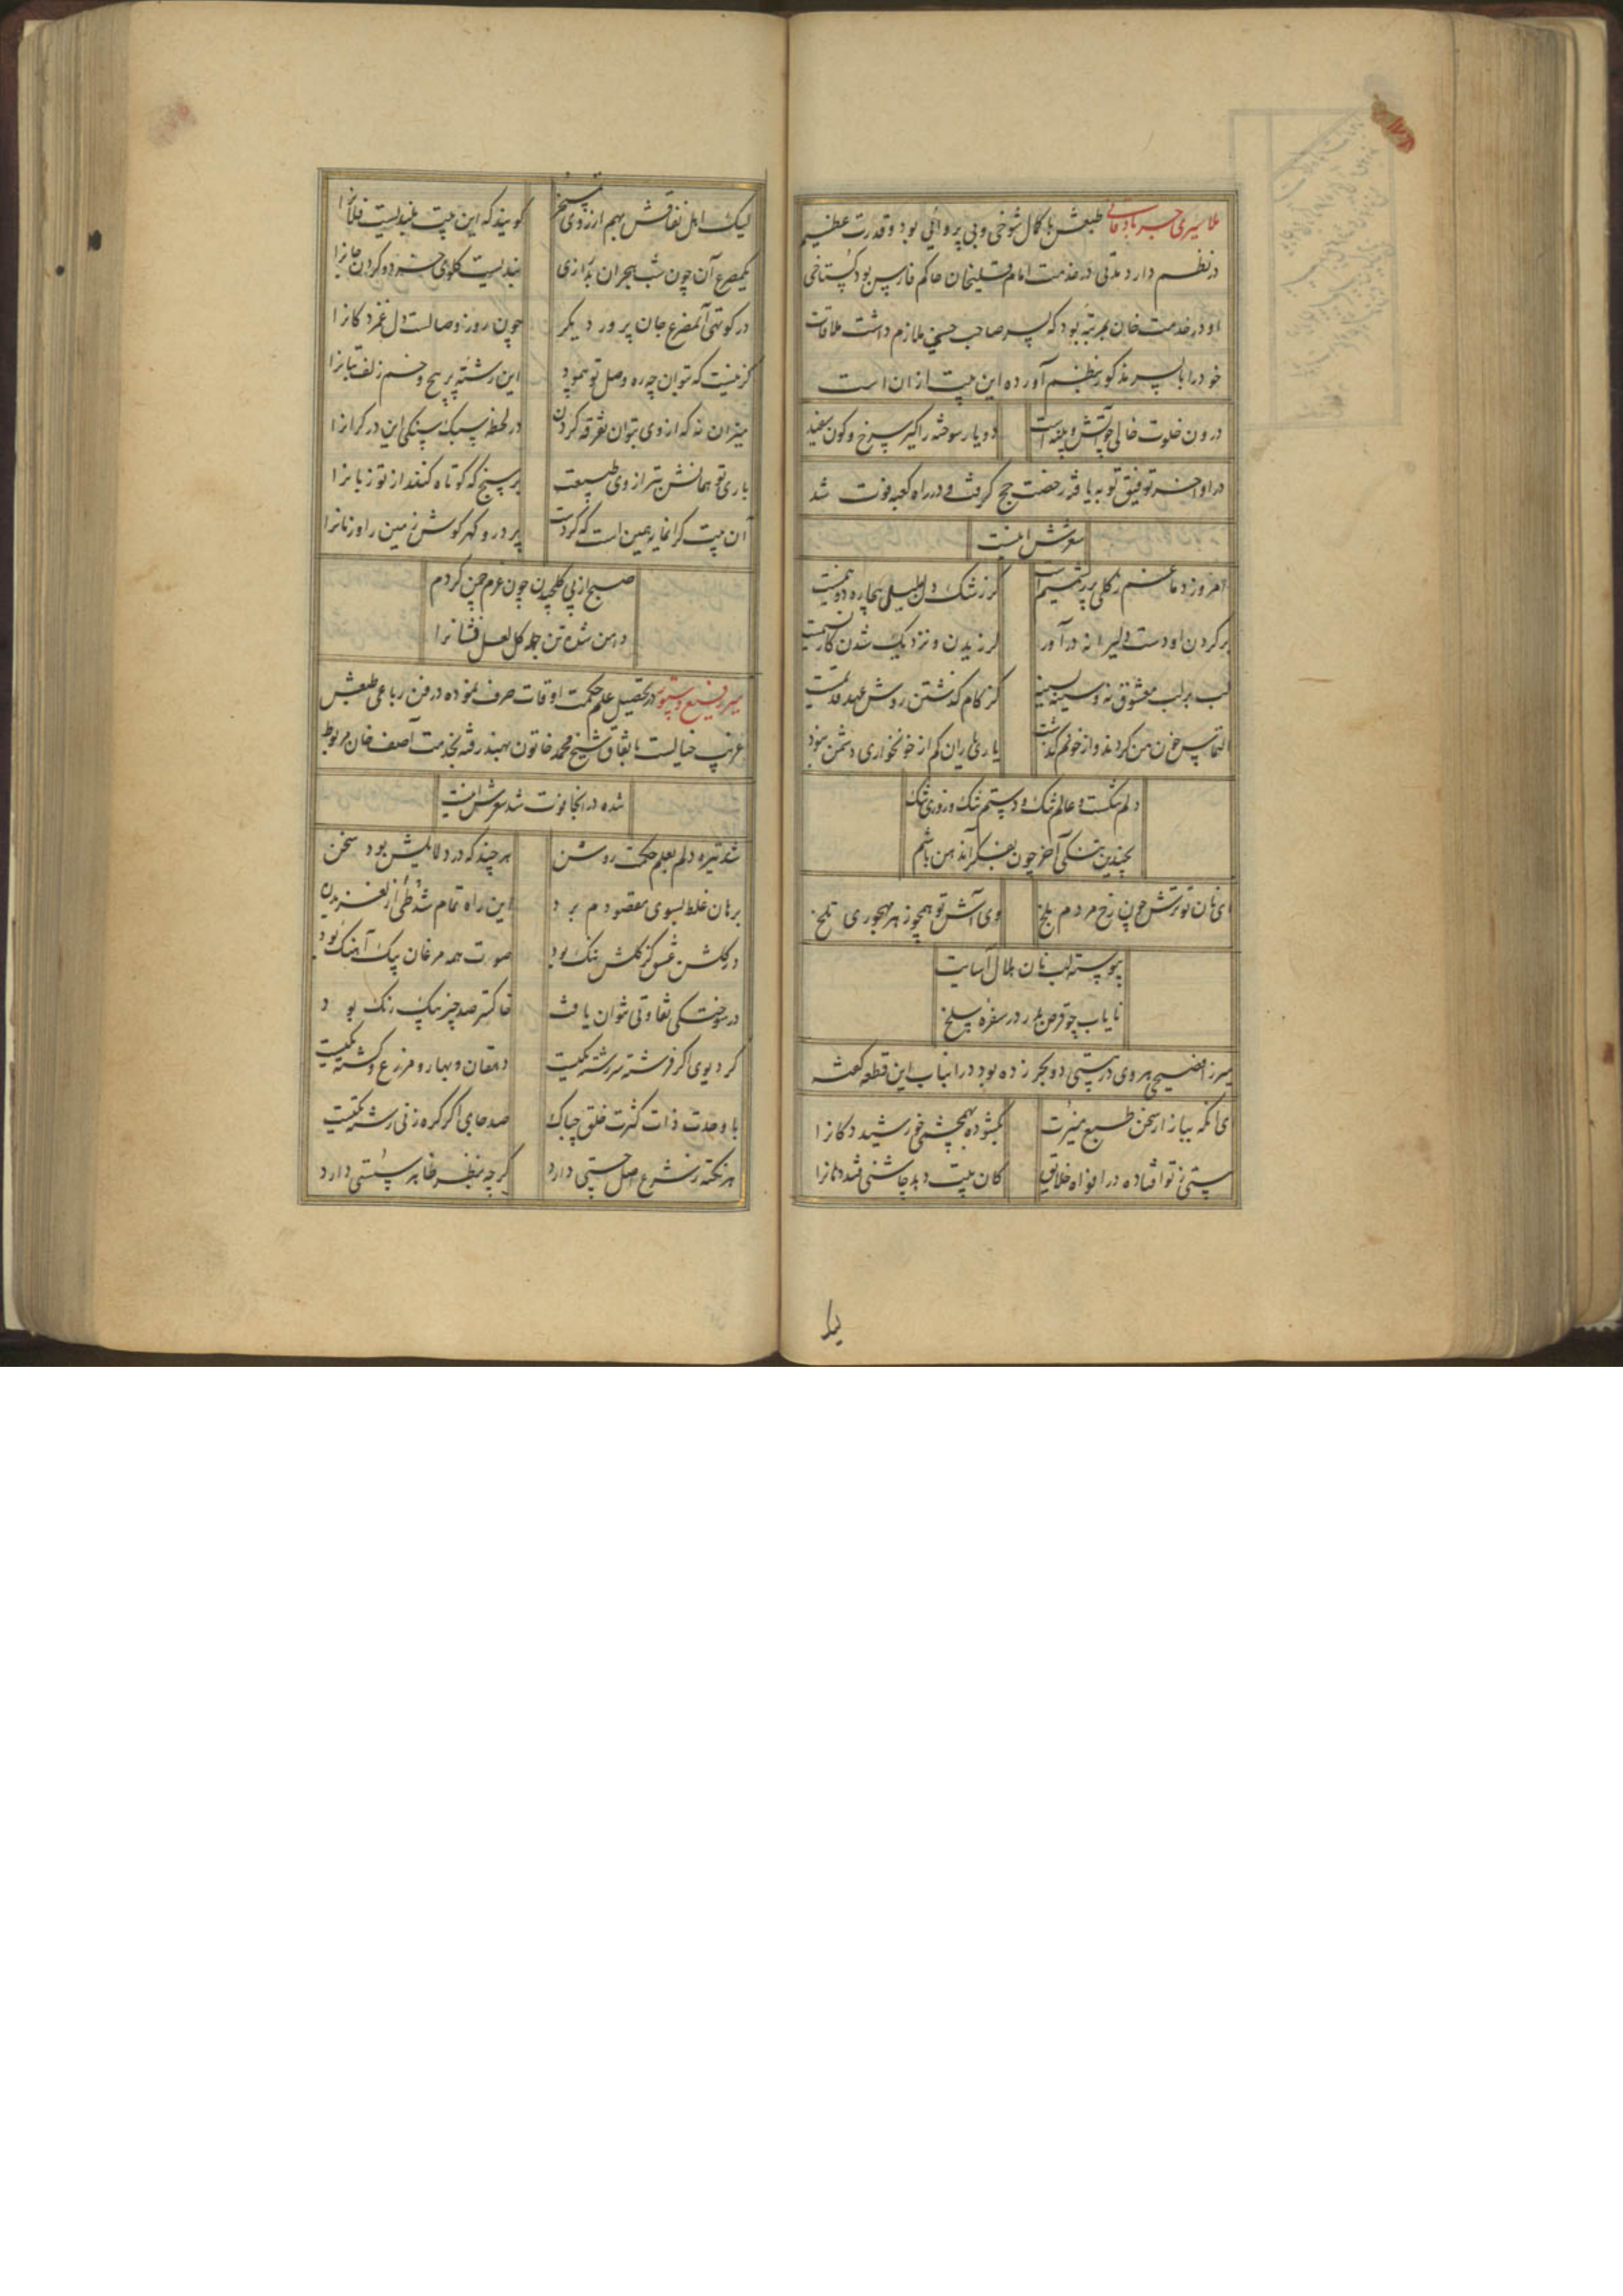 ملا سیری جربادقانی طبعش با کمال شوخی و بی پروائی بود و قدرت عظیم
در نظم دارد مدتی در خدمت امام قلیخان حاکم فارس بود گستاخی
او در خدمت خان بمرتبه بود که پسر صاحب حسنی ملازم داشت ملاقات
خود را با پسر مذکور بنظم آورده این بیت از آن است
درون خلوت خالی چو آتش و پنبه است
دو یار سوخته را کیر سرخ و کون سفید
در اواخر توفیق توبه یافته رخصت حج گرفت و در راه کعبه فوت شد
شعرش اینست
امروز دماغم ز گلی پر ز شمیم است
کز رشک دل بلبل بیچاره دو نیمست
بر گردن او دست دلیرانه درآور
لرزیدن و نزدیک شدن کار نسیمست
لب بر لب معشوق نه و سینه بسینه
کز کام گذشتن روش عهد قدیمست
التماس خون من کردند و از خونم گذشت
یاری یاران کم از خونخواری دشمن نبود
دلم تنگست و عالم تنگ و دستم تنگ و روزی تنگ
بچندین تنگی آخر چون بفکر آن دهن باشم
ای نان تو ترش چون رخ مردم بلخ
وی آش تو همچو زهر مهجوری تلخ
پیوسته لب نان هلال آسایت
نایاب چو قرص بدر در سفره سلخ
میرزا فصیحی هروی در بیتی دو بحر زده بود در آنباب این قطعه گفته
ای آنکه ببازار سخن طبع منیرت
بگشوده بهمچشمی خورشید دکانرا
بیتی ز تو افتاده در افواه خلایق
کان بیت دهد چاشنی قند دهانرا
لیک اهل نفاقش بهم از روی تمسخر
گویند که این بیت بلندیست فلانرا
یکمصرع آن چون شب هجران بدرازی
در کوتهی آنمصرع جان پرور دیگر
چون روز وصالست دل غمزدگانرا
کز نیست که بتوان چه ره وصل تو پیمود
این رشته پر پیچ و خم زلف بتانرا
میزان نه که از وی بتوان تفرقه کردن
در لحظه سبک سنگی این در گرانرا
باری تو همانش بترازوی طبیعت
بر سنج که کوتاه کند از تو زبانرا
آن بیت گرانمایه همین است که کردت
پر در و گهر گوش زمین را و زمانرا
صبح از پی گلچیدن چون عزم چمن کردم
دهن شد تن جمله گل لعل فشانرا
میر رفیع دستور در تحصیل علم حکمت اوقات صرف نموده در فن رباعی طبعش
غریب خیالست باتفاق شیخ محمد خاتون بهند رفته بخدمت آصف خان مربوط
شده در آنجا فوت شد شعرش اینست
شد تیره دلم بعلم حکمت روشن
هر چند که در دلایلش بود سخن
برهان غلط بسوی مقصودم برد
این راه تمام شد طی از لغزیدن
در گلشن عشق کز گلش ننگ بود
صوت همه مرغان بیک آهنگ بود
در سوختگی تفاوتی نتوان یافت
خاکستر صد چیز بیک رنگ بود
گر دیوی اگر فرشته سررشته یکیست
دهقان و بهار و مزرع و کشته یکیست
با وحدت ذات کثرت خلق چه باک
صد جای اگر گره زنی رشته یکیست
هر نکته ز شرع اصل چستی دارد
گرچه بنظر ظاهر سستی دارد